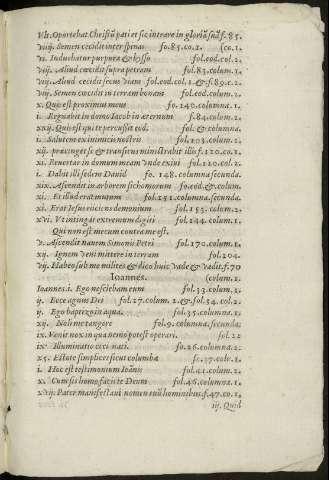 Vlt. Oportebat Christũ pati et sic intrare in gloriũ suã f. 85.
viij. Semen cecidit inter spinas fo. 85. co. 2. (co. 1.
vi. Induebatur purpura & bysso fol. eod. col. 2.
viij. Aliud cecidit supra petram fol. 83. column. 1.
viij. Aliud cecidit secus viam fol. eod. col. 1. & f. 89. c. 2.
viij. Semen cecidit in terram bonam fol. eod. colum. 2.
x. Quis est proximus meus fo. 140. columna. 1.
i. Regnabit in domo Iacob in æternum f. 84. colum. 2.
xxij. Quis est qui te percussit eod. fol. & columna.
i. Salutem ex inimicis nostris fol. 103. colum. 2.
xij. præcinget se & transiens ministrabit illis f. 120. co. 2.
xi. Reuertar in domum meam vnde exiui fol. 120. col. 2.
i. Dabit illi sedem Dauid fo. 148. columna secunda.
xix. Ascendit in arborem sichomorum fo. eod. & colum.
xi. Et illud erat mutum fol. 251. columna secunda.
xi. Erat Iesus eiiciens demonium fol. 155. colum. 2.
xvi. Vt intingat extremum digiti fol. 244. colum. 1.
Qui non est mecum contra me est.
v. Ascendit nauem Simonis Petri fol. 170. colum. 1.
xij. Ignem veni mittere in terram fol. 204.
vij. Habeo sub me milites & dico huic vade & vadit. f. 70
Ioannes. (colum. 1.
Ioannes. i. Ego nesciebam eum fol. 33. colum. 2.
ij. Ecce agnus Dei fol. 27. colum. 2. & fol. 34. col. 2.
ij. Ego baptezo in aqua. fol. 35. columna 2.
xij. Noli me tangere fol. 9. columna. secunda.
ix. Venit nox in qua nemo potest operari. fol. 22
ix. Illuminatio cæci nati. fo. 26. columna. 2.
xs. Estote simplices sicut columbæ fo. 37. colũ. 1.
i. Hoc est testimonium Ioãnis fol. 41. colum. 1.
x. Cum sis homo facis te Deum fol. 46. columna. 1.
xvij. Pater manifestaui nomen tuũ hominibus f. 47. co. 1.
iij. Quid